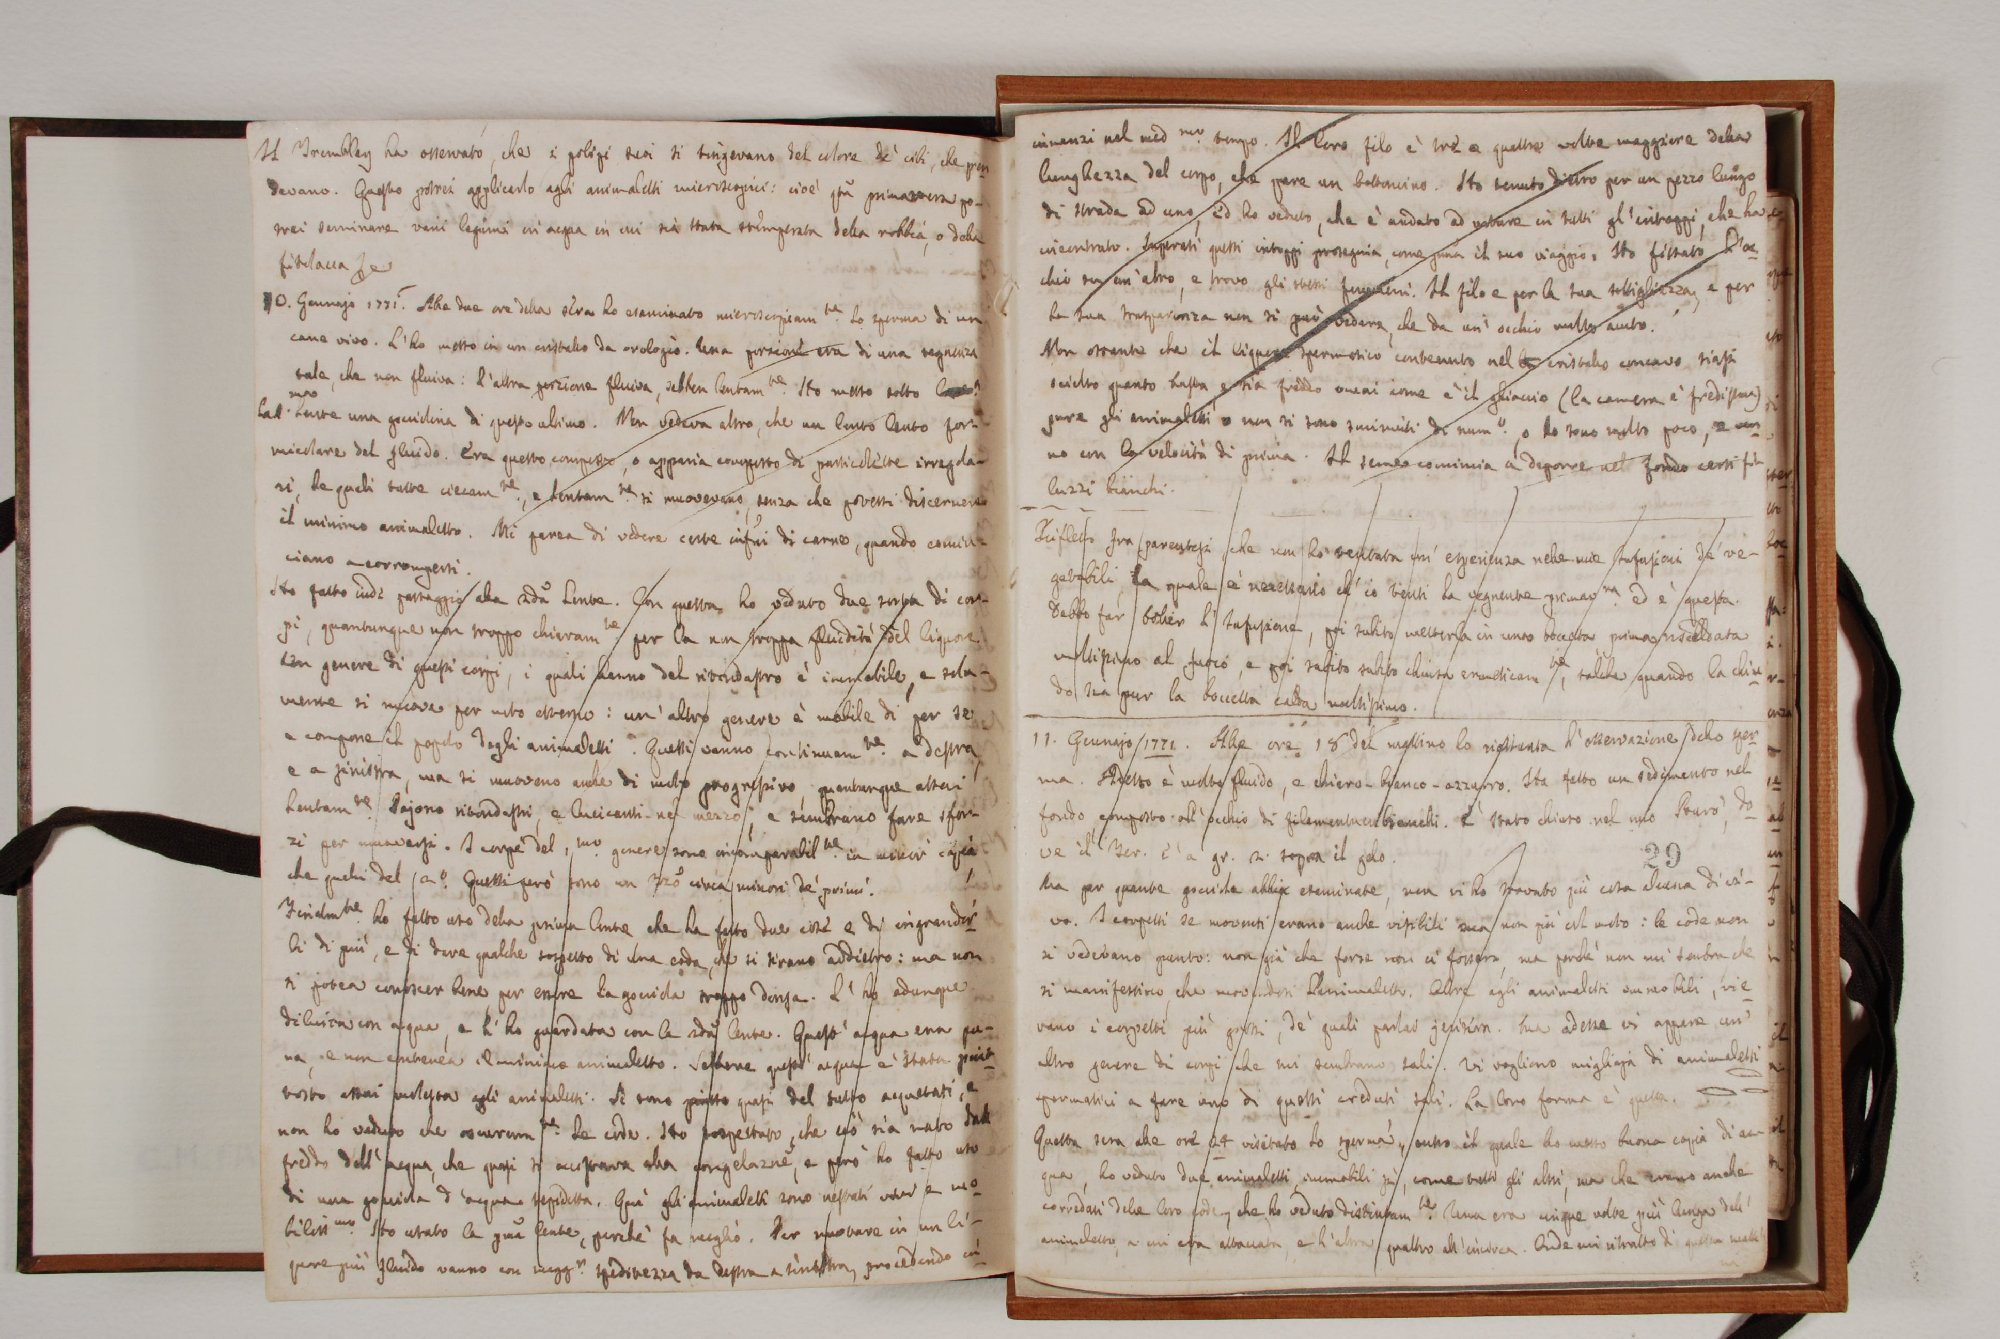 Il Trembley ha osservato, che i polipi suoi si tingevano del colore de' cibi, che pren
devano. Questo potrei applicarlo agli animaletti microscopici: cioè primavera po-
trei seminare varii legumi in acqua in cui sia stata stemperata della robbia, o della
fitolacca
10. Gennajo 1771. Alle due ore della sera ho esaminato microscopicam.te lo sperma di un
cane vivo. L'ho messo in un cristallo da orologio. Una porzione era di una tegnenza
tale, che non fluiva: l'altra porzione fluiva, sebben lentam.te Ho messo sotto
lente una gocciolina di quest'ultimo. Non vedeva altro, che un lento lento for-
micolare del fluido. Era questo composto, o apparia composto di particolette irregola-
ri, le quali tutte ciecam.te, e lentam.te si muovevano, senza che potessi discernere
il minimo animaletto. Mi parea di vedere certe infusi di carne, quando comin-
ciano a corrompersi.
Ho fatto indi passaggio alla 2da lente. Con questa ho veduto due sorta di cor-
pi, quantunque non troppo chiaram.te per la non troppa fluidità del liquore.
Un genere di questi corpi, i quali hanno del ritondastro è immobile, e sola-
mente si muove per moto esterno: un'altro genere è mobile di per se
e compone il popolo degli animaletti. Questi vanno continuam.te a destra,
e a sinistra, ma si muovono anche di moto progressivo, quantunque assai
lentam.te Pajono ritondastri, e lucicanti nel mezzo, e sembrano fare sfor-
zi per muoversi. I corpi del 1.mo genere sono incomparabil.te in minor copia
che quelli del 2.o Questi però sono un circa minori de' primi.
Finalm.te ho fatto uso della prima lente che ha fatto due cose e di ingrandir
li di più, e di dare qualche sospetto di una coda, che si tirano addietro: ma non
si potea conoscer bene per essere la gocciola troppo densa. L'ho adunque
diluita con acqua, e l'ho guardata con la 2da lente. Quest'acqua era pu-
ra, e non contenea il minimo animaletto. Sebbene quest'acqua è stata piut
tosto assai molesta agli animaletti. Si sono quasi del tutto acquetati, e
non ho veduto che oscuram.te le code. Ho sospettato, che ciò sia nato dal
freddo dell'acqua, che quasi si accostava alla congelazne, e però ho fatto uso
di una gocciola d'acqua tepidetta. Qui gli animaletti sono restati vivi e mo
biliss.mo Ho usato la pma lente, perchè fa meglio. Per nuotare in un li-
quore più fluido vanno con magg.r speditezza da destra a sinistra, procedendo in
innanzi nel med.mo tempo. Il loro filo è tre o quattro volte maggiore della
lunghezza del corpo, che pare un bottoncino. Ho tenuto dietro per un pezzo lungo
di strada ad uno, ed ho veduto, che è andato ad urtare in tutti gl'intoppi, che ha
incontrato. Superati questi intoppi proseguiva, come prima il suo viaggio. Ho fissato l'oc
chio su un altro, e trovo gli stessi fenomeni. Il filo e per la sua sottigliezza, e per
la sua trasparenza non si può vedere, che da un'occhio molto acuto.
Non ostante che il liquore spermatico contenuto nel cristallo concavo siasi
sciolto quanto basta e sia freddo omai come è il ghiaccio (la camera è fredissima)
pure gli animaletti o non si sono sminuiti di num.o, o lo sono molto poco, e van
no con la velocità di prima. Il seme comincia a deporre nel fondo certi fi
luzzi bianchi.
Rifletto fra parentesi che non ho tentata un'esperienza nelle mie Infusioni de' ve-
getabili, la quale è necessario ch'io tenti la vegnente primav.ra ed è questa.
Debbo far bollir l'Infusione, poi subito metterla in una boccetta prima riscaldata
moltissimo al fuoco, e poi subito subito chiusa ermeticam.te, talche quando la chiu
do sia pur la boccetta calda moltissimo.
11. Gennajo 1771. Alle ore 18 del mattino ho ripigliata l'osservazione dello sper
ma. Adesso è molto fluido, e chiaro-bianco-azzurro. Ha fatto un sedimento nel
fondo composto all'occhio di filamentucci bianchi. È stato chiuso nel mio Studio, do
ve il Ter. è a gr. 2. sopra il gelo.
29
Ma per quante gocciole abbia esaminate, non vi ho trovato più cosa alcuna di vi-
vo. I corpetti se moventi erano anche visibili ma non più col moto: le code non
si vedevano punto: non già che forse non ci fossero, ma perchè non mi sembra che
si manifestino, che movendosi l'animaletto. Oltre agli animaletti immobili, vi e
rano i corpetti più grossi, de' quali parlai jeri sera. Ma adesso vi appare un'
altro genere di corpi che mi sembrano sali. Vi vogliono migliaja di animaletti
spermatici a fare uno di questi creduti sali. La loro forma è questa.
Questa sera che ore 24 visitato lo sperma, entro il quale ho messo buona copia di ac-
qua, ho veduto due animaletti immobili sì, come tutti gli altri, ma che erano anche
corredati delle loro code, che ho veduto distintam.te Una era cinque volte più lunga dell'
animaletto, a cui era attaccata, e l'altra quattro all'incirca. Onde mi ritratto di